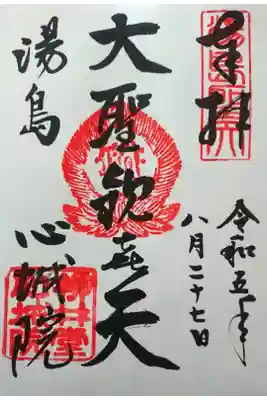 奉拝
令和五年
八月二十七日
大聖歓喜天
湯島
心城院